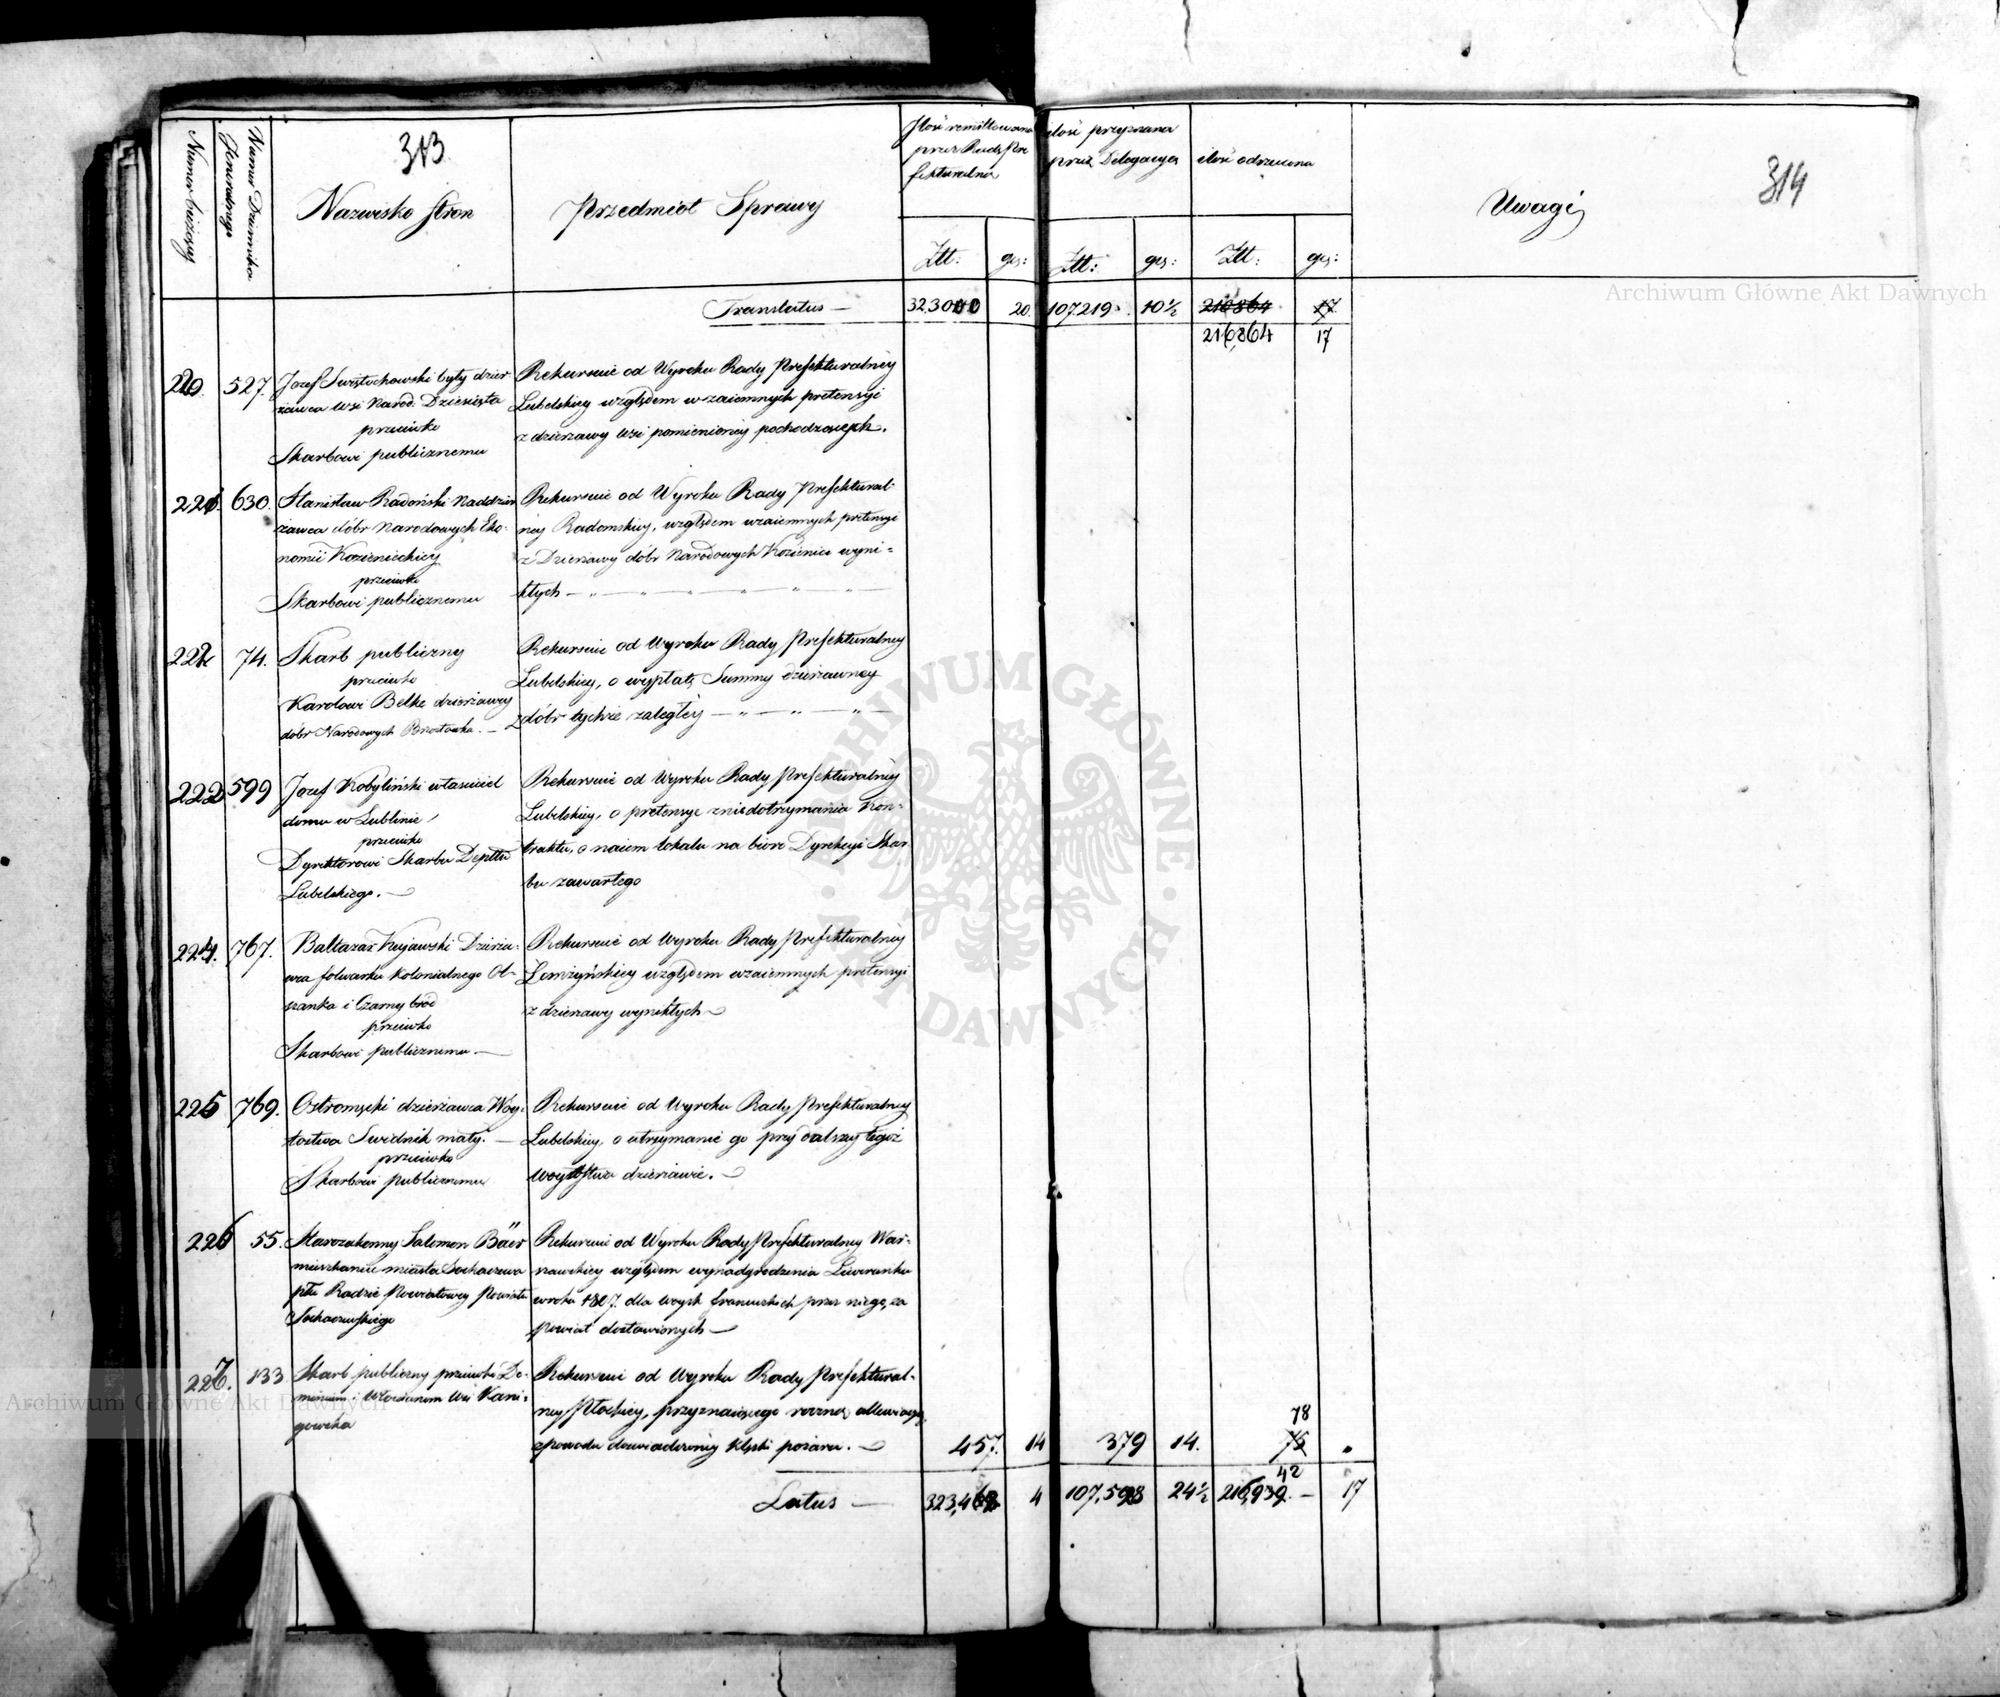 313
314
Numer bieżący
Numer Dziennika
Jeneralnego
Nazwisko Stron
Przedmiot Sprawy
Ilość remittowana
przez Radę Pre
fekturalną
ilość przyznana
przez Delegacyą
ilość odrzucona
Uwagi
Złt: gr: Złt: gr: Złt: gr:
Translatus — 323010 20 107,219 10½ 216864 17
216,864 17
220 527. Jozef Swiętochowski były dzier
żawca wsi Narod. Dziesięta
przeciwko
Skarbowi publicznemu
Rekursuie od Wyroku Rady Prefekturalney
Lubelskiey względem wzaiemnych pretensyi
z dzierżawy wsi pomienioney pochodzących.
221. 630. Stanisław Radoński Naddzier
żawca dóbr Narodowych Eko-
nomii Kozienieckiey
przeciwko
Skarbowi publicznemu
Rekursuie od Wyroku Rady Prefektural-
ney Radomskiey, względem wzaiemnych pretensyi
z Dzierżawy dóbr Narodowych Kozienice wyni=
kłych —
222 74. Skarb publiczny
przeciwko
Karolowi Belke dzierżawcy
dóbr Narodowych Brzostówka. —
Rekursuie od Wyroku Rady Prefekturalney
Lubelskiey, o wypłatę Summy dzierżawney
z dóbr tychże zaległey —
223 599 Jozef Kobyliński właściciel
domu w Lublinie
przeciwko
Dyrektorowi Skarbu Depttu
Lubelskiego. —
Rekursuie od Wyroku Rady Prefekturalney
Lubelskiey, o pretensye z niedotrzymania Kon-
traktu, o naiem lokalu na bióro Dyrekcyi Skar
bu zawartego
224. 767. Baltazar Kujawski Dzierża-
wca folwarku kolonialnego Ol-
szanka i Czarny bród
przeciwko
Skarbowi publicznemu. —
Rekursuie od Wyroku Rady Prefekturalney
Łomżyńskiey względem wzaiemnych pretensyi
z dzierżawy wynikłych —
225 769. Ostromęcki dzierżawca Woy-
tostwa Swidnik mały. —
przeciwko
Skarbowi publicznemu
Rekursuie od Wyroku Rady Prefekturalney
Lubelskiey, o utrzymanie go przy dalszey tegoż
woytostwa dzierżawie. —
226 55. Starozakonny Salomon Bäer
mieszkaniec miasta Sochaczewa
pko Radzie Powiatowey Powiatu
Sochaczewskiego
Rekursuie od Wyroku Rady Prefekturalney War-
szawskiey względem wynadgrodzenia Liwerunku
w roku 1807. dla woysk francuskich przez niego, za
powiat dostawionych —
227. 133 Skarb publiczny przeciwko Do-
minium i Włościanom Wsi Kani-
gowska
Rekursuie od Wyroku Rady Prefektural-
ney Płockiey, przyznaiącego roczną allewiacyą,
z powodu doświadczoney klęski pożaru. —
457. 14 379 14. 75 78
Latus — 323,468 4 107,598 24½ 216,939. 42 — 17
Archiwum Główne Akt Dawnych
Archiwum Główne Akt Dawnych
ARCHIWUM GŁÓWNE AKT DAWNYCH